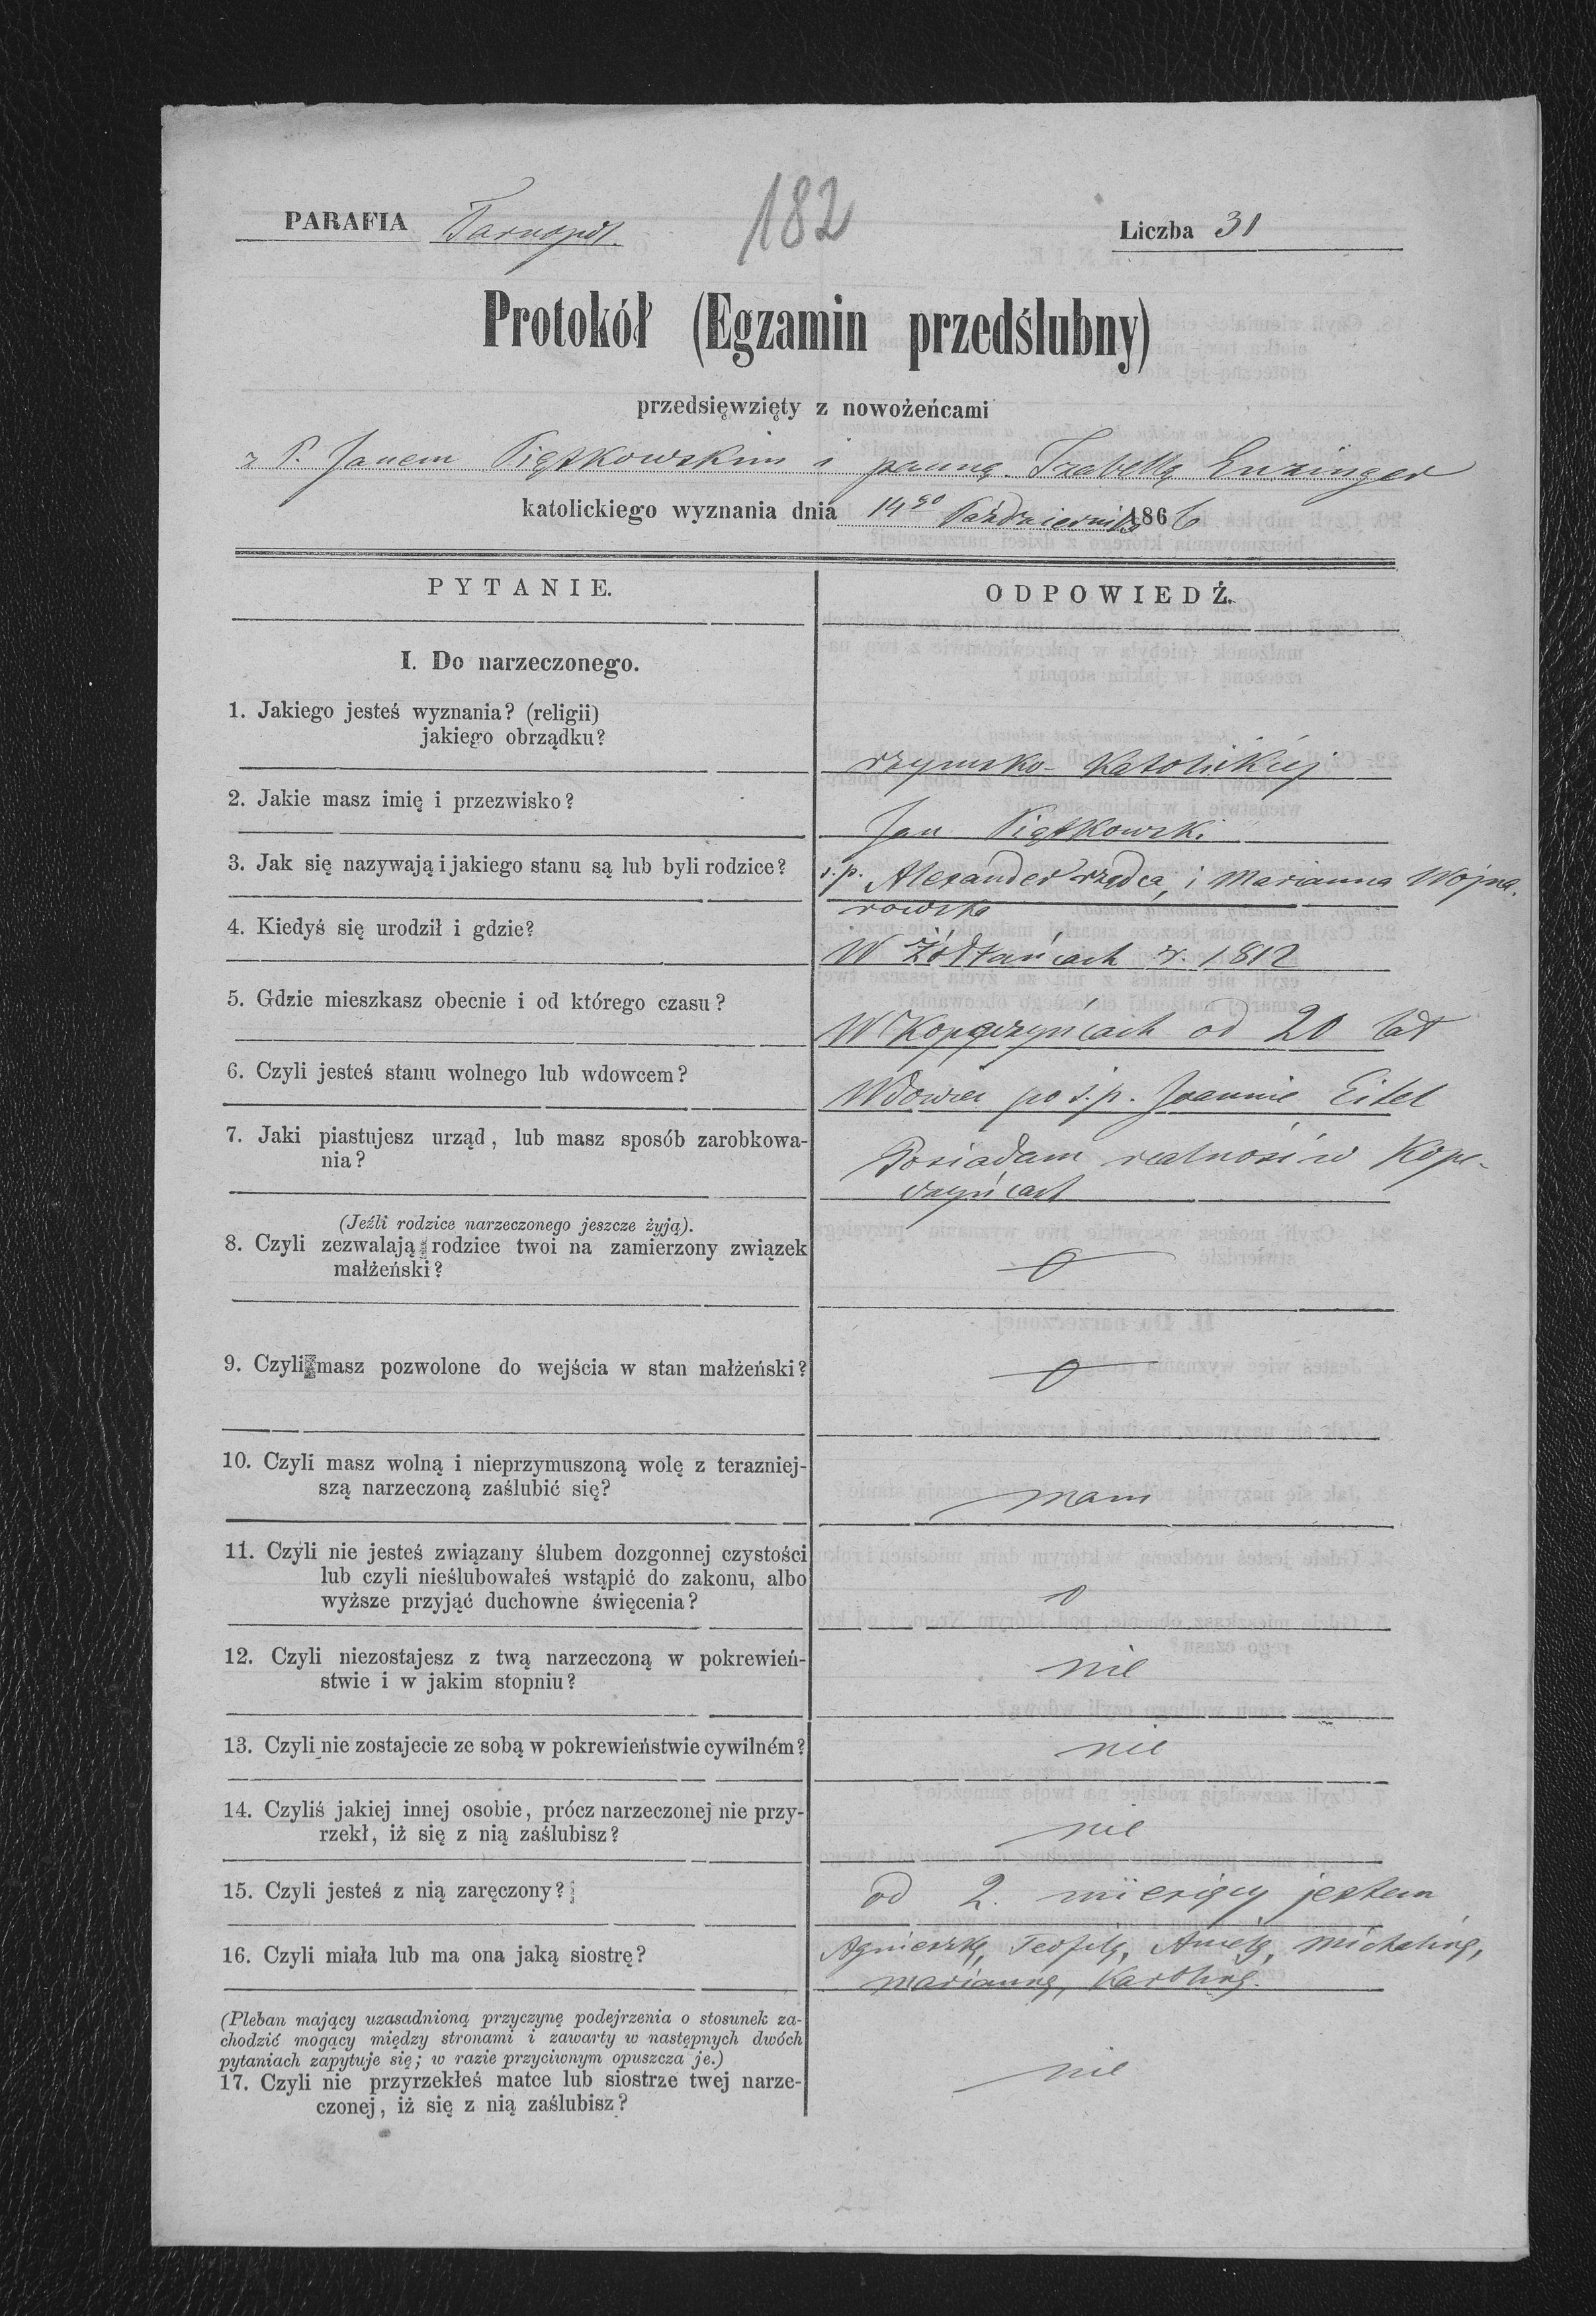 182
PARAFIA Tarnopol. Liczba 31
Protokół (Egzamin przedślubny)
przedsięwzięty z nowożeńcami
z P. Janem Piątkowskim i panną Izabellą Enzinger
katolickiego wyznania dnia 14go Października 1866
PYTANIE. ODPOWIEDŹ.
I. Do narzeczonego.
1. Jakiego jesteś wyznania? (religii)
jakiego obrządku?
rzymsko-katolickiej
2. Jakie masz imię i przezwisko?
Jan Piątkowski
3. Jak się nazywają i jakiego stanu są lub byli rodzice?
ś.p. Alexander rządca, i Marianna Wojna-
rowska
4. Kiedyś się urodził i gdzie?
W Żółtańcach r. 1812
5. Gdzie mieszkasz obecnie i od którego czasu?
W Kopeczyńcach od 20 lat
6. Czyli jesteś stanu wolnego lub wdowcem?
Wdowiec po ś.p. Joannie Eitel
7. Jaki piastujesz urząd, lub masz sposób zarobkowa-
nia?
Posiadam realność w Kope-
czyńcach
(Jeźli rodzice narzeczonego jeszcze żyją).
8. Czyli zezwalają rodzice twoi na zamierzony związek
małżeński?
0
9. Czyli masz pozwolone do wejścia w stan małżeński?
0
10. Czyli masz wolną i nieprzymuszoną wolę z terazniej-
szą narzeczoną zaślubić się?
mam
11. Czyli nie jesteś związany ślubem dozgonnej czystości
lub czyli nieślubowałeś wstąpić do zakonu, albo
wyższe przyjąć duchowne święcenia?
0
12. Czyli niezostajesz z twą narzeczoną w pokrewień-
stwie i w jakim stopniu?
nie
13. Czyli nie zostajecie ze sobą w pokrewieństwie cywilném?
nie
14. Czyliś jakiej innej osobie, prócz narzeczonej nie przy-
rzekł, iż się z nią zaślubisz?
nie
15. Czyli jesteś z nią zaręczony?
od 2. miesięcy jestem
16. Czyli miała lub ma ona jaką siostrę?
Agnieszkę, Teofilę, Anielę, Michalinę,
Mariannę, Karolinę.
(Pleban mający uzasadnioną przyczynę podejrzenia o stosunek za-
chodzić mogący między stronami i zawarty w następnych dwóch
pytaniach zapytuje się; w razie przyciwnym opuszcza je.)
17. Czyli nie przyrzekłeś matce lub siostrze twej narze-
czonej, iż się z nią zaślubisz?
nie